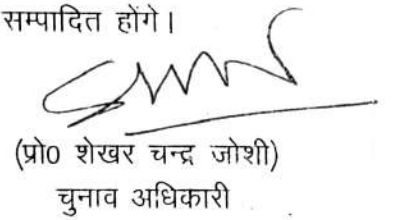 सम्पादित होंगे।
(प्रो0 शेखर चन्द्र जोशी)
चुनाव अधिकारी